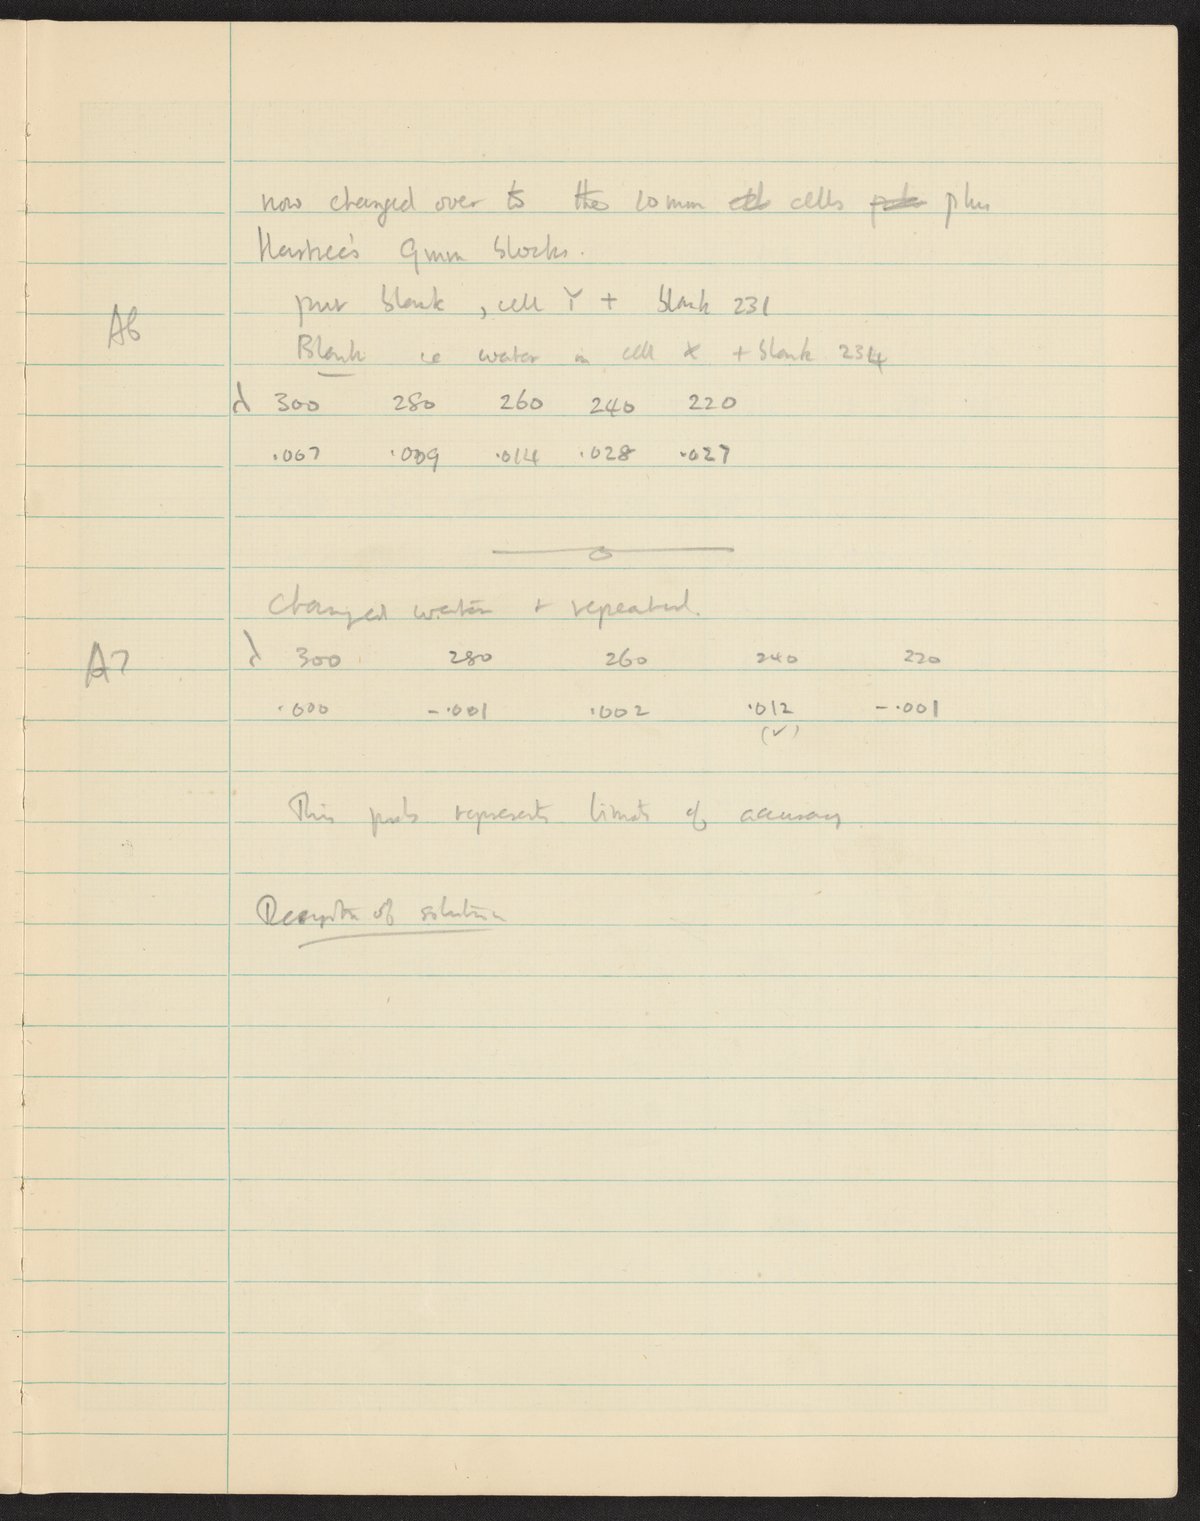 now changed over to the 10 mm cells plus
Hartree's 9mm blocks.
A6
put blank, cell Y + blank 231
Blank ie water in cell X + blank 234
λ 300 280 260 240 220
.007 .009 .014 .028 .027
Changed water + repeated.
A7
λ 300 280 260 240 220
.000 -.001 .002 .012 -.001
(✓)
This represents limits of accuracy
of solution